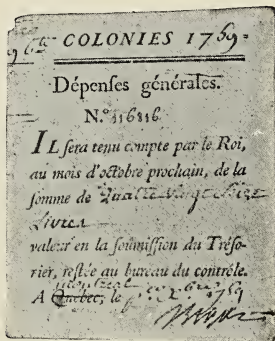 COLONIES 1759.
Dépenſes générales.
N.º 116816
IL ſera tenu compte par le Roi,
au mois d'octobre prochain, de la
ſomme de Quatre vingt Seize
Livres
valeur en la ſoumiſſion du Tréſo-
rier, reſtée au bureau du contrôle.
Montreal
A Québec, le 1759